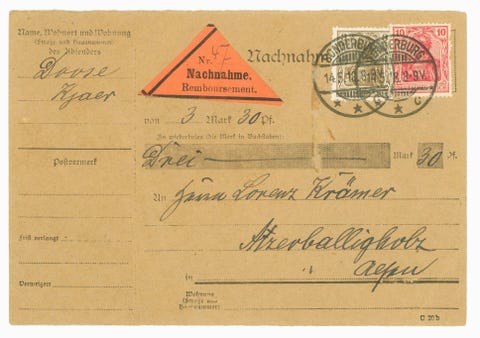 Name, Wohnort und Wohnung
(Straße und Hausnummer)
des Absenders
Doose
Kjaer
Postvermerk
Frist verlangt
Vorzeigen:
Nr. 47
Nachnahme.
Remboursement.
Nachnahme
SONDERBURG
SONDERBURG
10
10
von 3 Mark 30 Pf.
In wiederholen (die Mark in Buchstaben):
Drei Mark 30 Pf.
An Herrn Lorenz Krämer
Atzerballigholz
in Alsen
Wohnung
(Straße und
Hausnummer)